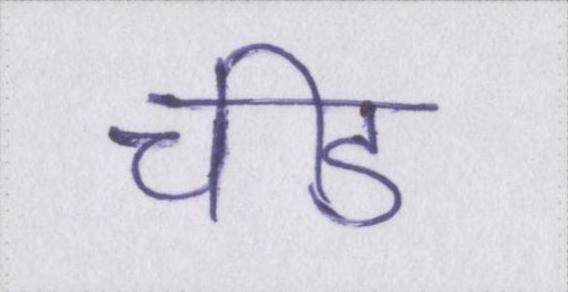 चीड